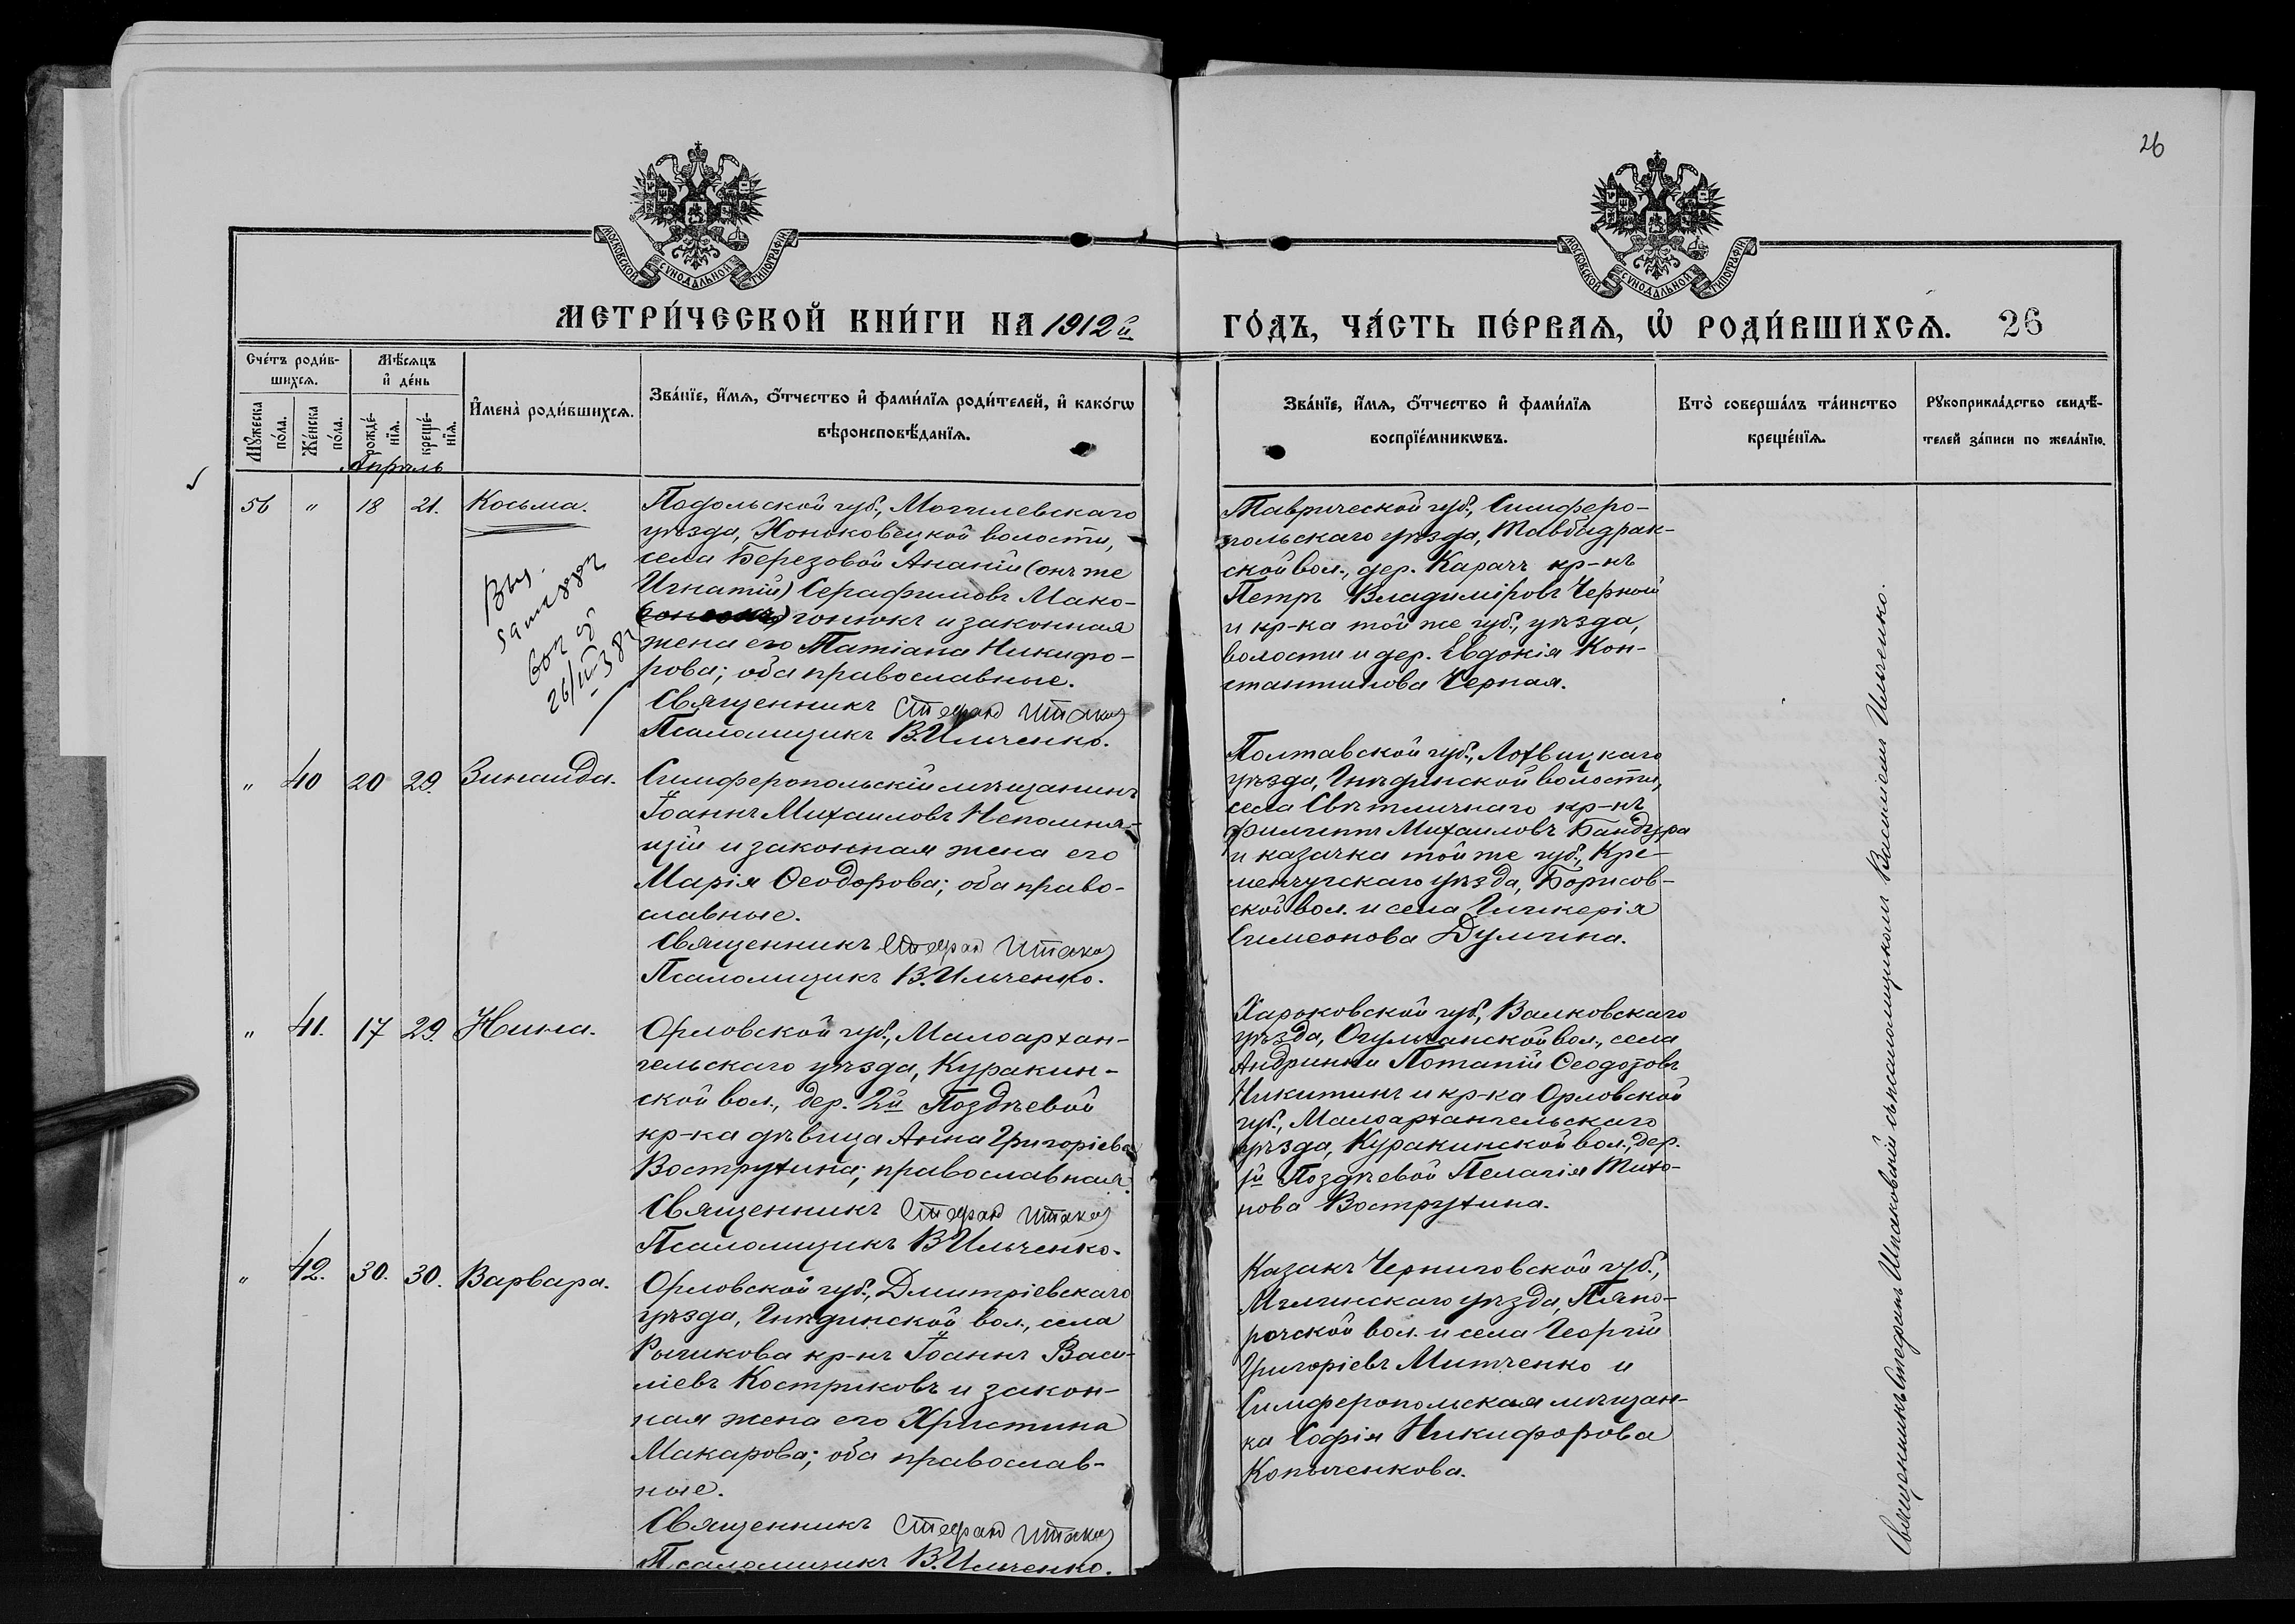 26
МОСКОВСКОЙ СѴНОДАЛЬНОЙ ТИПОГРАФІИ
МОСКОВСКОЙ СѴНОДАЛЬНОЙ ТИПОГРАФІИ
МЕТРИ́ЧЕСКОЙ КНИ́ГИ НА 1912й
ГО́ДЪ, ЧА́СТЬ ПЕ́РВАѦ, Ѡ҆ РОДИ́ВШИХСѦ. 26
Сче́тъ роди́в-
шихсѧ.
Мѣ́сѧцъ
и҆ де́нь
Мꙋ́жеска
по́ла.
Же́нска
по́ла.
рожде́-
нїѧ.
креще́-
нїѧ.
И҆мена̀ роди́вшихсѧ.
Зва́нїе, и҆́мѧ, ѻ҆́тчество и҆ фами́лїѧ роди́телей, и҆ како́гѡ
вѣроисповѣ́данїѧ.
Зва́нїе, и҆́мѧ, ѻ҆́тчество и҆ фами́лїѧ
воспрїе́мникѡвъ.
Кто̀ соверша́лъ та́инство
креще́нїѧ.
Рꙋкоприкла́дство свидѣ́-
телей за́писи по жела́нїю.
Апрѣль
56 " 18 21. Косьма.
Подольской губ., Могилевскаго
уѣзда, Конюковецкой волости,
села Березовой Ананій (онъ же
Игнатій) Серафимовъ Мако-
гонюкъ и законная
жена его Татіана Никифо-
рова; оба православные.
Священникъ Стефан Шпако
Псаломщикъ В. Ильченко.
Таврической губ., Симферо-
польскаго уѣзда, Тавбадрак-
ской вол., дер. Карачъ кр-нъ
Петръ Владиміровъ Черной
и кр-ка той же губ., уѣзда,
волости и дер. Евдокія Кон-
стантинова Черная.
Выд.
26/II-38г
" 40 20 29. Зинаида.
Симферопольскій мѣщанинъ
Іоаннъ Михаиловъ Непомня-
щій и законная жена его
Марія Ѳеодорова; оба право-
славные.
Священникъ Стефан Шпако
Псаломщикъ В. Ильченко.
Полтавской губ., Лохвицкаго
уѣзда, Гнѣдинской волости,
села Свѣтличнаго кр-нъ
Филиппъ Михаиловъ Бандура
и казачка той же губ., Кре-
менчугскаго уѣзда, Борисов-
ской вол. и села Гликерія
Симеонова Думгина.
" 41. 17 29. Нина.
Орловской губ., Малоархан-
гельскаго уѣзда, Куракин-
ской вол., дер. 2й Поздѣевой
кр-ка дѣвица Анна Григоріева
Вострухина; православная.
Священникъ Стефан Шпако
Псаломщикъ В. Ильченко.
Харьковской губ., Валковскаго
уѣзда, Огульчанской вол., села
Андринки Потапій Ѳеодотовъ
Никитинъ и кр-ка Орловской
губ., Малоархангельскаго
уѣзда, Куракинской вол., дер.
й Поздѣевой Пелагія Тихо-
нова Вострухина.
" 42. 30. 30. Варвара.
Орловской губ., Дмитріевскаго
уѣзда, Гнѣдинской вол., села
Рычкова кр-нъ Іоаннъ Васи-
ліевъ Костриковъ и закон-
ная жена его Христина
Макарова; оба православ-
ные.
Священникъ Стефан Шпако
Псаломщикъ В. Ильченко.
Казакъ Черниговской губ.,
Мглинскаго уѣзда, Пяно-
рочской вол. и села Георгій
Григоріевъ Митченко и
Симферопольская мѣщан-
ка Софія Никифорова
Копыченкова.
Священникъ Стефанъ Шпаковскій съ псаломщикомъ Василіемъ Ильченко.